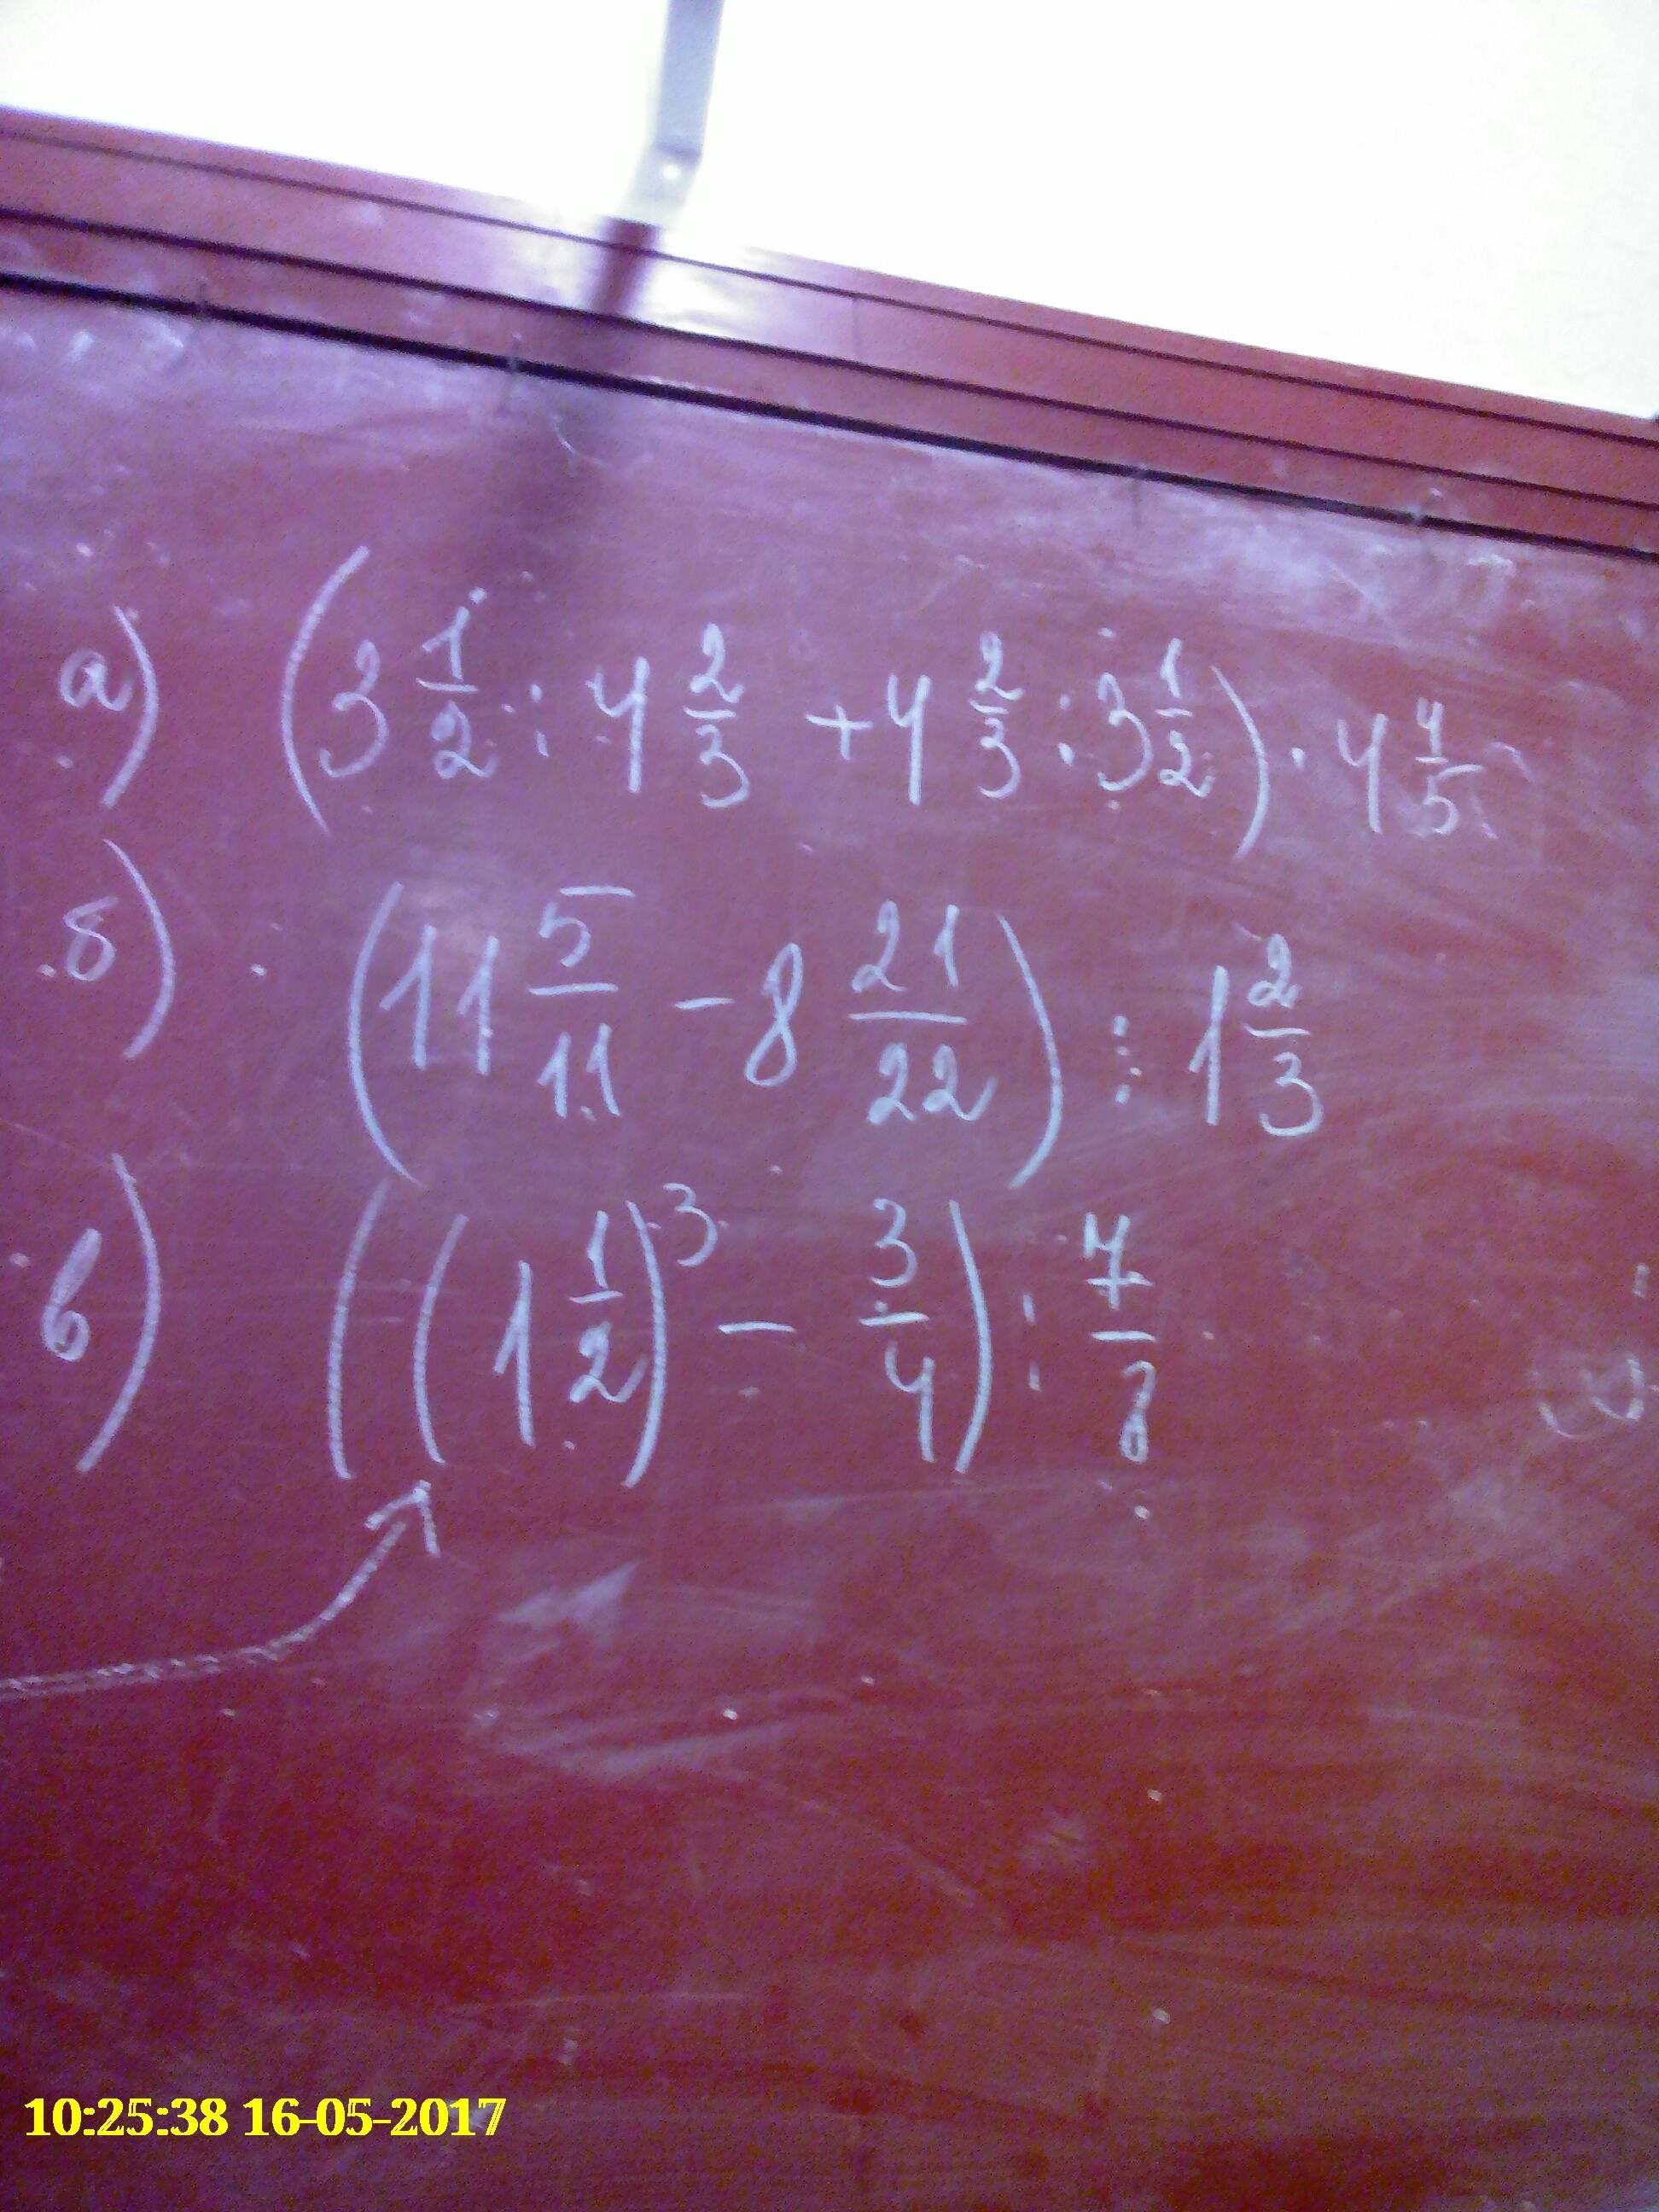 а) (3 1/2 : 4 2/3 + 4 2/3 : 3 1/2) · 4 4/5
б) (11 5/11 - 8 21/22) : 1 2/3
в) ((1 1/2)^3 - 3/4) : 7/8
10:25:38 16-05-2017